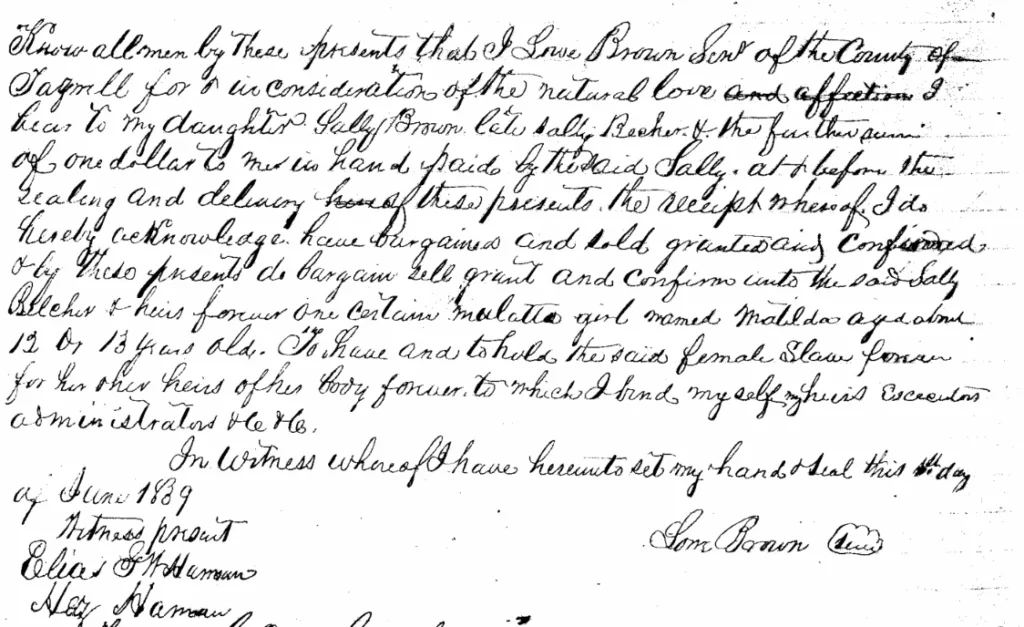 Know all men by these presents that I Lowe Brown Senr of the County of
Tazwell for & in consideration of the natural love and affection I
bear to my daughter Sally Brown late Sally Becher & the further sum
of one dollar to me in hand paid by the said Sally. at & before the
sealing and delivery of these presents. the receipt whereof I do
hereby acknowledge. have bargained and sold granted and confirmed
& by these presents do bargain sell grant and confirm unto the said Sally
Belcher & heirs forever one certain mulatto girl named Matilda aged about
12 or 13 years old. To have and to hold the said female Slave forever
for her & her heirs of her body forever. to which I bind myself my heirs Executors
administrators &c &c.
In Witness whereof I have hereunto set my hand & seal this day
of June 1839
Witness present
Low Brown Seal
Elias G W Harman
Hez Harman